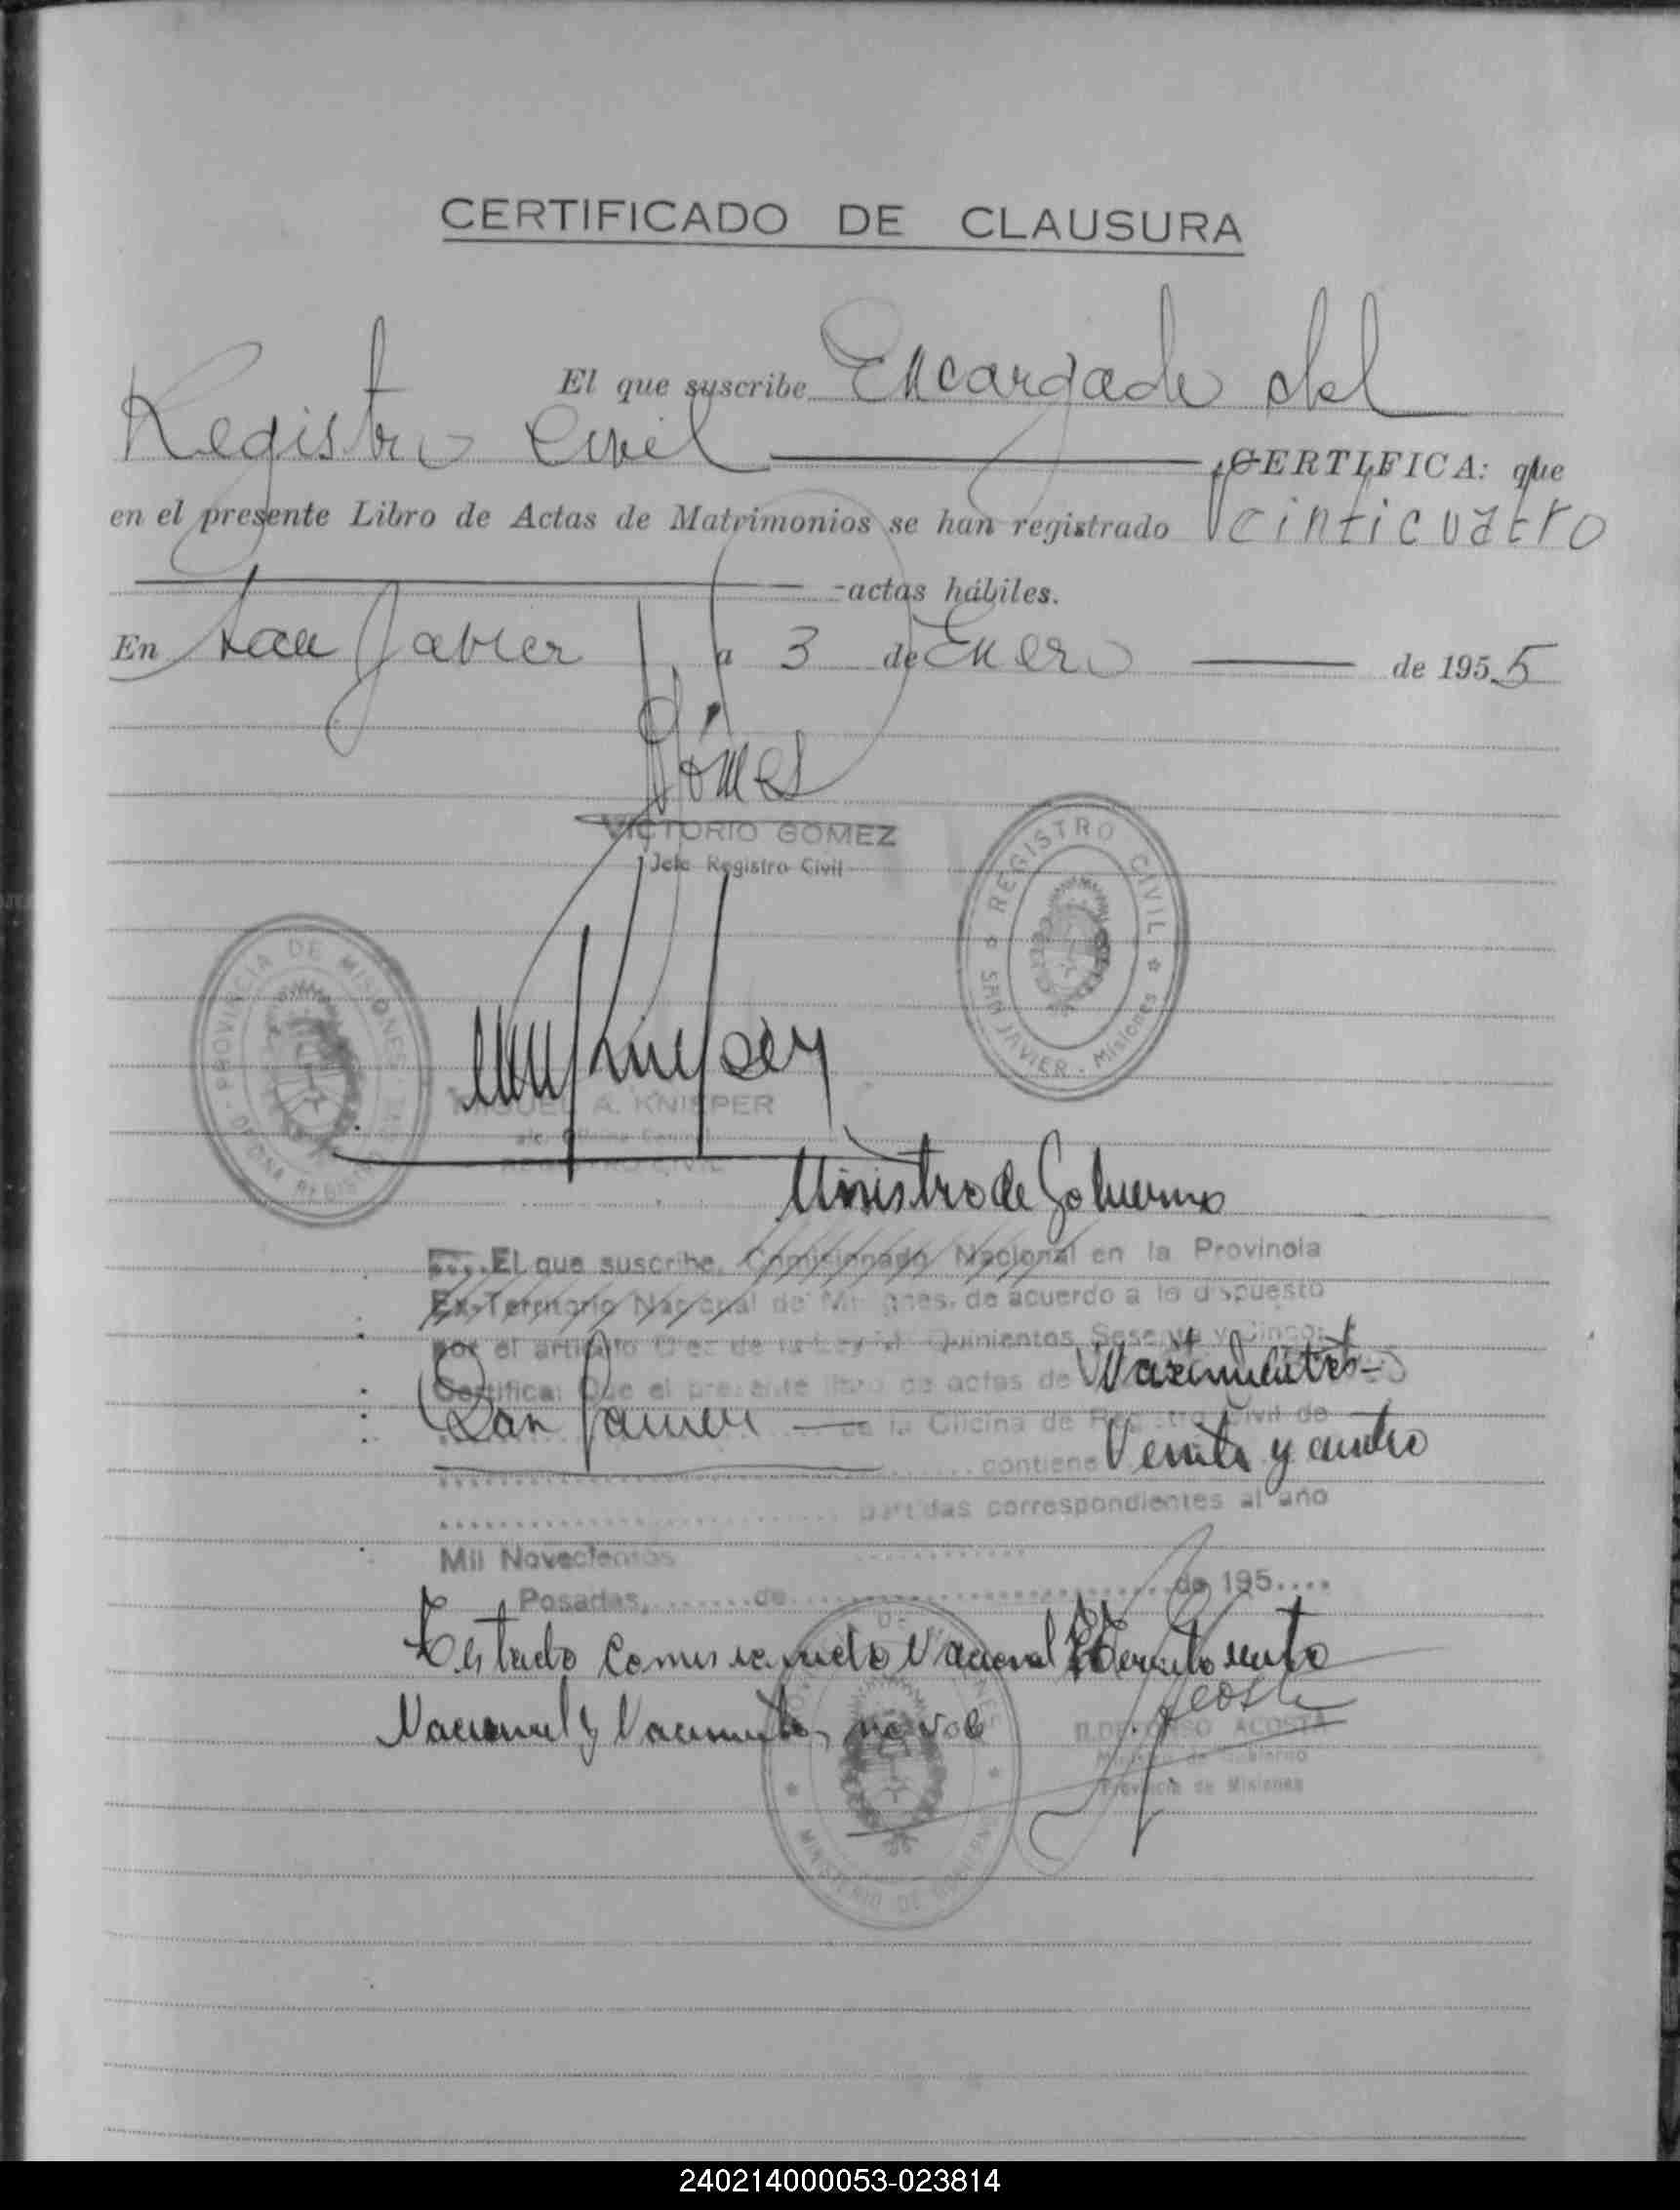 CERTIFICADO DE CLAUSURA
El que suscribe Encargado del
Registro Civil CERTIFICA: que
en el presente Libro de Actas de Matrimonios se han registrado Veinticuatro
actas hábiles.
En San Javier a 3 de Enero de 1955
Gómez
VICTORIO GOMEZ
Jefe Registro Civil
REGISTRO CIVIL
SAN JAVIER - Misiones
PROVINCIA DE MISIONES
MIGUEL A. KNISPER
REGISTRO CIVIL
Ministro de Gobierno
El que suscribe, Comisionado Nacional en la Provincia
Ex-Territorio Nacional de Misiones, de acuerdo a lo dispuesto
por el artículo Diez de la Ley Quinientos Sesenta y Cinco;
Certifica: Que el presente libro de actas de
San Javier de la Oficina de Registro Civil de
contiene Veinte y cuatro
partidas correspondientes al año
Mil Novecientos
Posadas, de de 195
Testado Comisionado Nacional
Nacional y Nacimiento, no vale
Acosta
ILDEFONSO ACOSTA
Ministro de Gobierno
Provincia de Misiones
MINISTERIO DE GOBIERNO
240214000053-023814